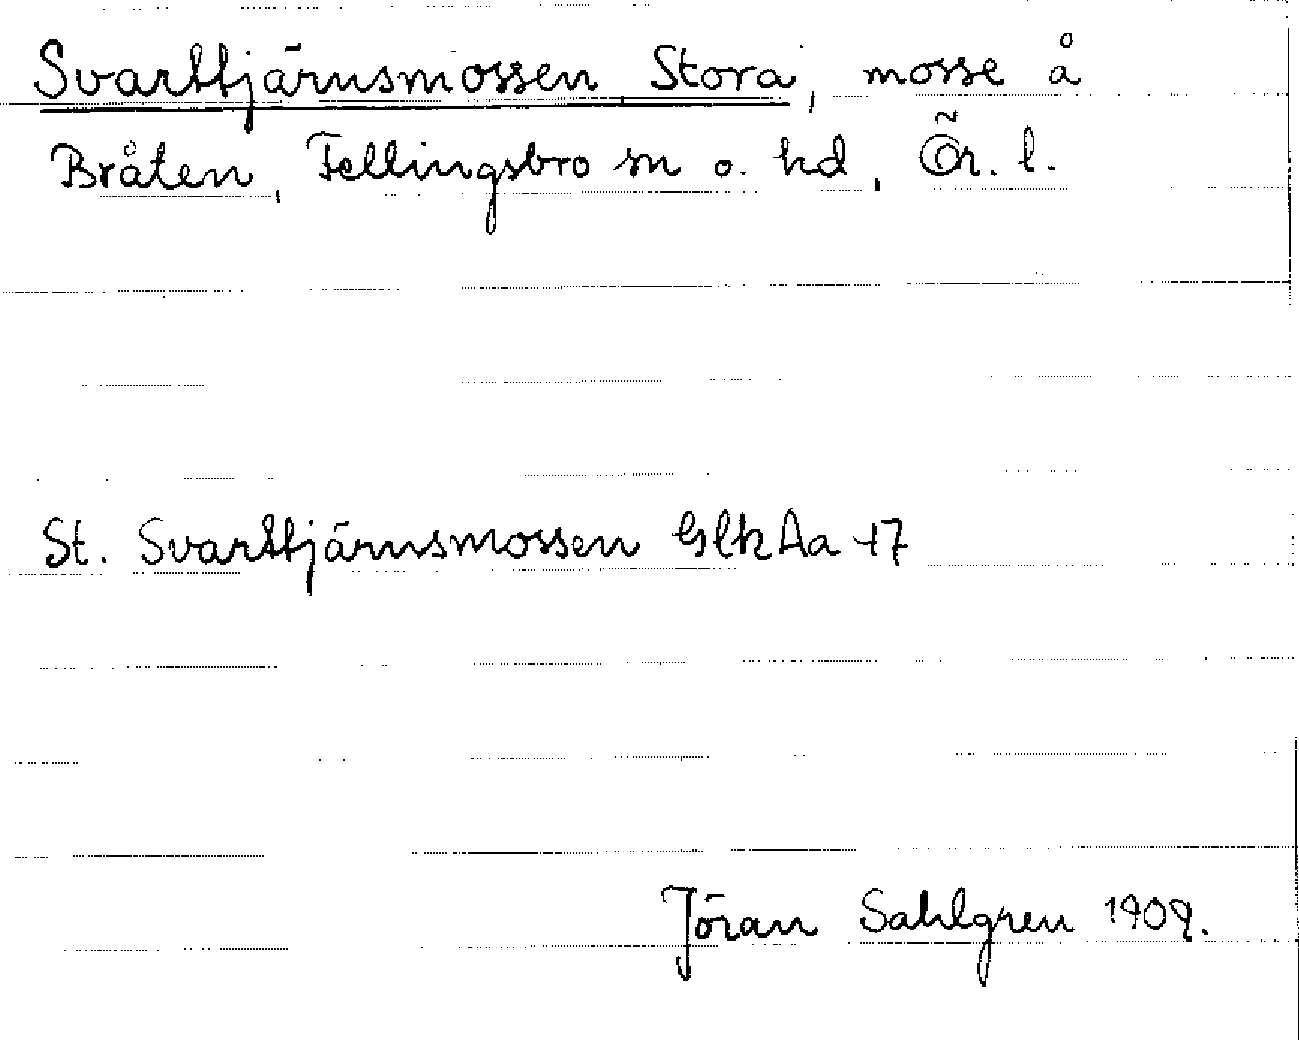 Svarttjärnsmossen Stora, mosse å
Bråten, Fellingsbro sn o. hd, Ör. l.
St. Svarttjärnsmossen GlkAa 17
Jöran Sahlgren 1909.